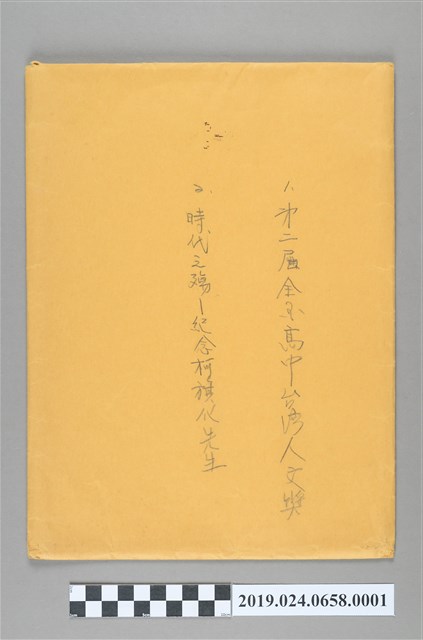 1、第二屆全国高中台湾人文奬
2、時代之殤－紀念柯旗化先生
2019.024.0658.0001